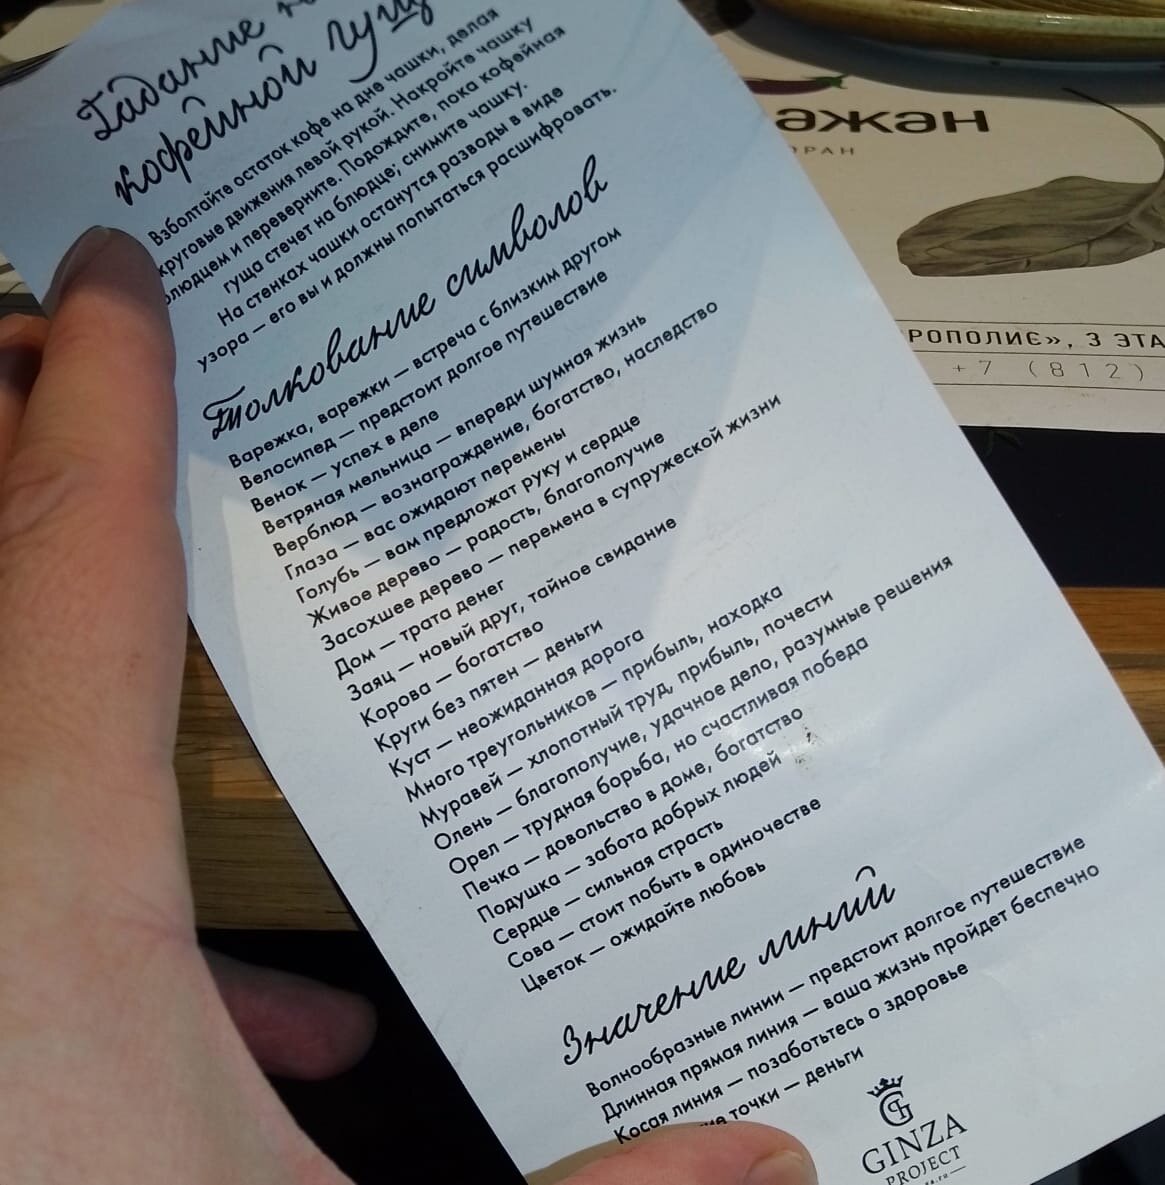 Гадание
кофейной гущ
Взболтайте остаток кофе на дне чашки, делая
круговые движения левой рукой. Накройте чашку
блюдцем и переверните. Подождите, пока кофейная
гуща стечет на блюдце; снимите чашку.
На стенках чашки останутся разводы в виде
узора — его вы и должны попытаться расшифровать.
Толкование символов
Варежка, варежки — встреча с близким другом
Велосипед — предстоит долгое путешествие
Венок — успех в деле
Ветряная мельница — впереди шумная жизнь
Верблюд — вознаграждение, богатство, наследство
Глаза — вас ожидают перемены
Голубь — вам предложат руку и сердце
Живое дерево — радость, благополучие
Засохшее дерево — перемена в супружеской жизни
Дом — трата денег
Заяц — новый друг, тайное свидание
Корова — богатство
Круги без пятен — деньги
Куст — неожиданная дорога
Много треугольников — прибыль, находка
Муравей — хлопотный труд, прибыль, почести
Олень — благополучие, удачное дело, разумные решения
Орел — трудная борьба, но счастливая победа
Печка — довольство в доме, богатство
Подушка — забота добрых людей
Сердце — сильная страсть
Сова — стоит побыть в одиночестве
Цветок — ожидайте любовь
Значение линий
Волнообразные линии — предстоит долгое путешествие
Длинная прямая линия — ваша жизнь пройдет беспечно
Косая линия — позаботьтесь о здоровье
точки — деньги
GINZA
PROJECT
ажан
ОРАН
РОПОЛИС», 3 ЭТА
+7 (812)